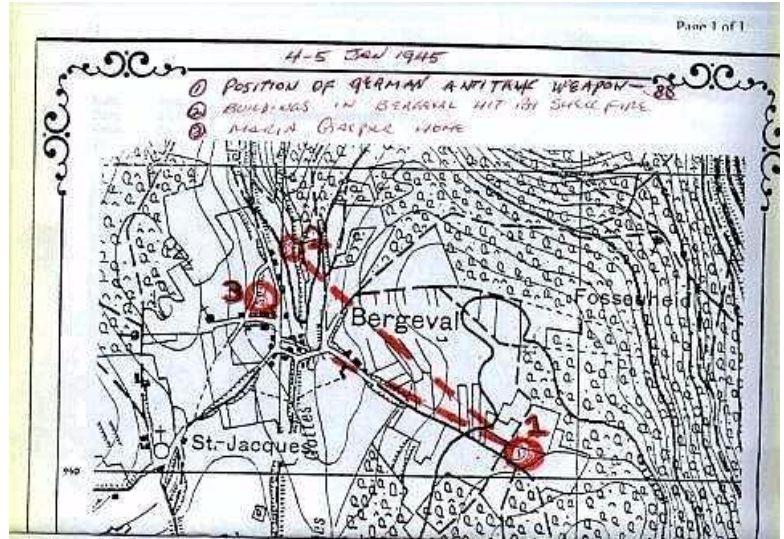 Page 1 of 1
4-5 JAN 1945
① POSITION OF GERMAN ANTITANK WEAPON- 88
② BUILDINGS IN BERGEVAL HIT BY SHELL FIRE
③ MARIA GASPAR HOME
2
3
Fosseuheid
Bergeval
1
St-Jacques